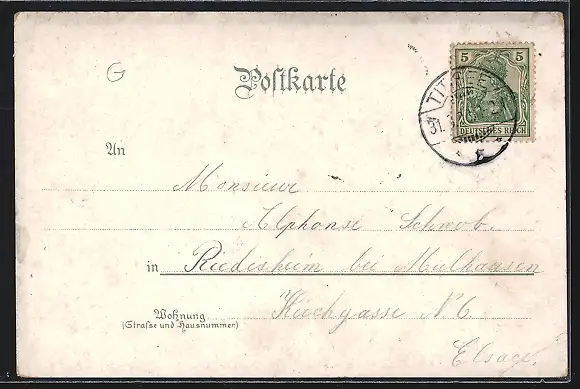 G
Postkarte
5 5
TITISEE
31.
DEUTSCHES REICH
An
Monsieur
Alphonse Schwob.
in Riedisheim bei Mülhausen
Wohnung
(Strafse und Hausnummer)
Kirchgasse N. 6.
Elsace.